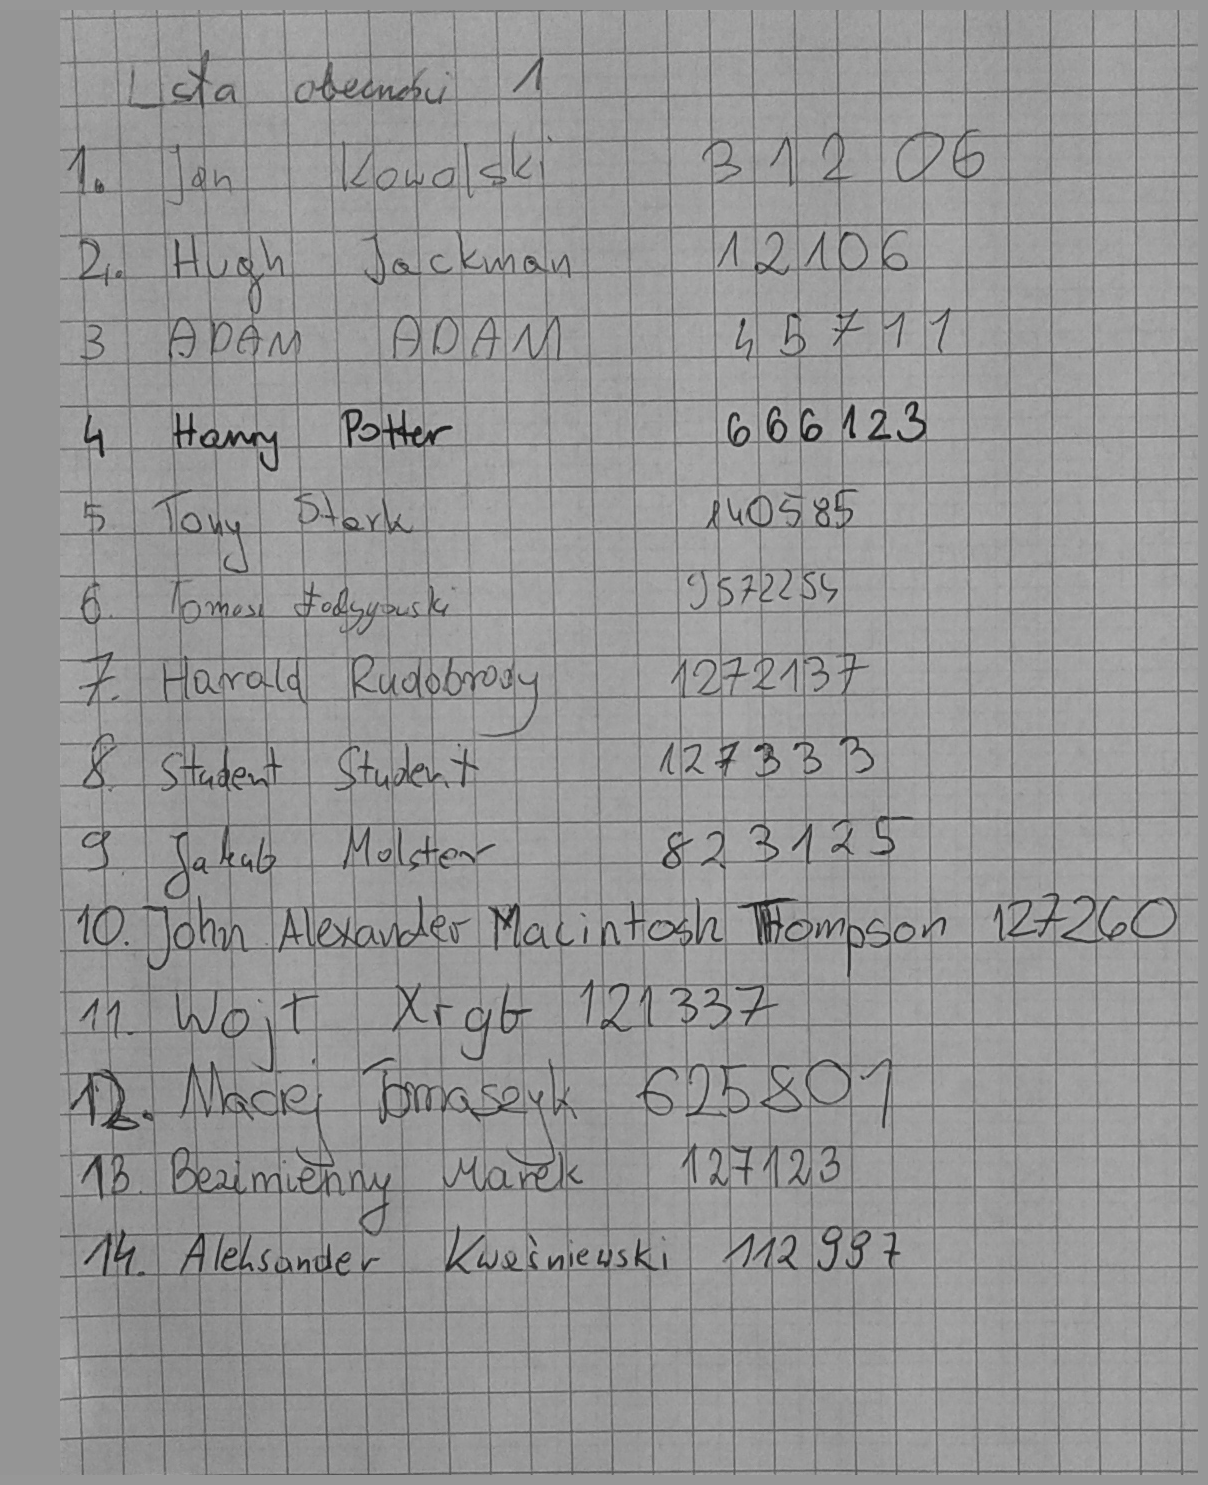 Lista obecności 1
1. Jan Kowalski 31206
2. Hugh Jackman 12106
3 ADAM ADAM 45711
4 Harry Potter 666123
5 Tony Stark 140585
6. Tomasz 9572254
7. Harald Rudobrody 1272137
8. Student Student 127333
9 Jakub Molster 823125
10. John Alexander Macintosh Thompson 127260
11. Wojt Xrgb 121337
12. Maciej Tomaszyk 625801
13. Bezimienny Marek 127123
14. Aleksander Kwaśniewski 112997